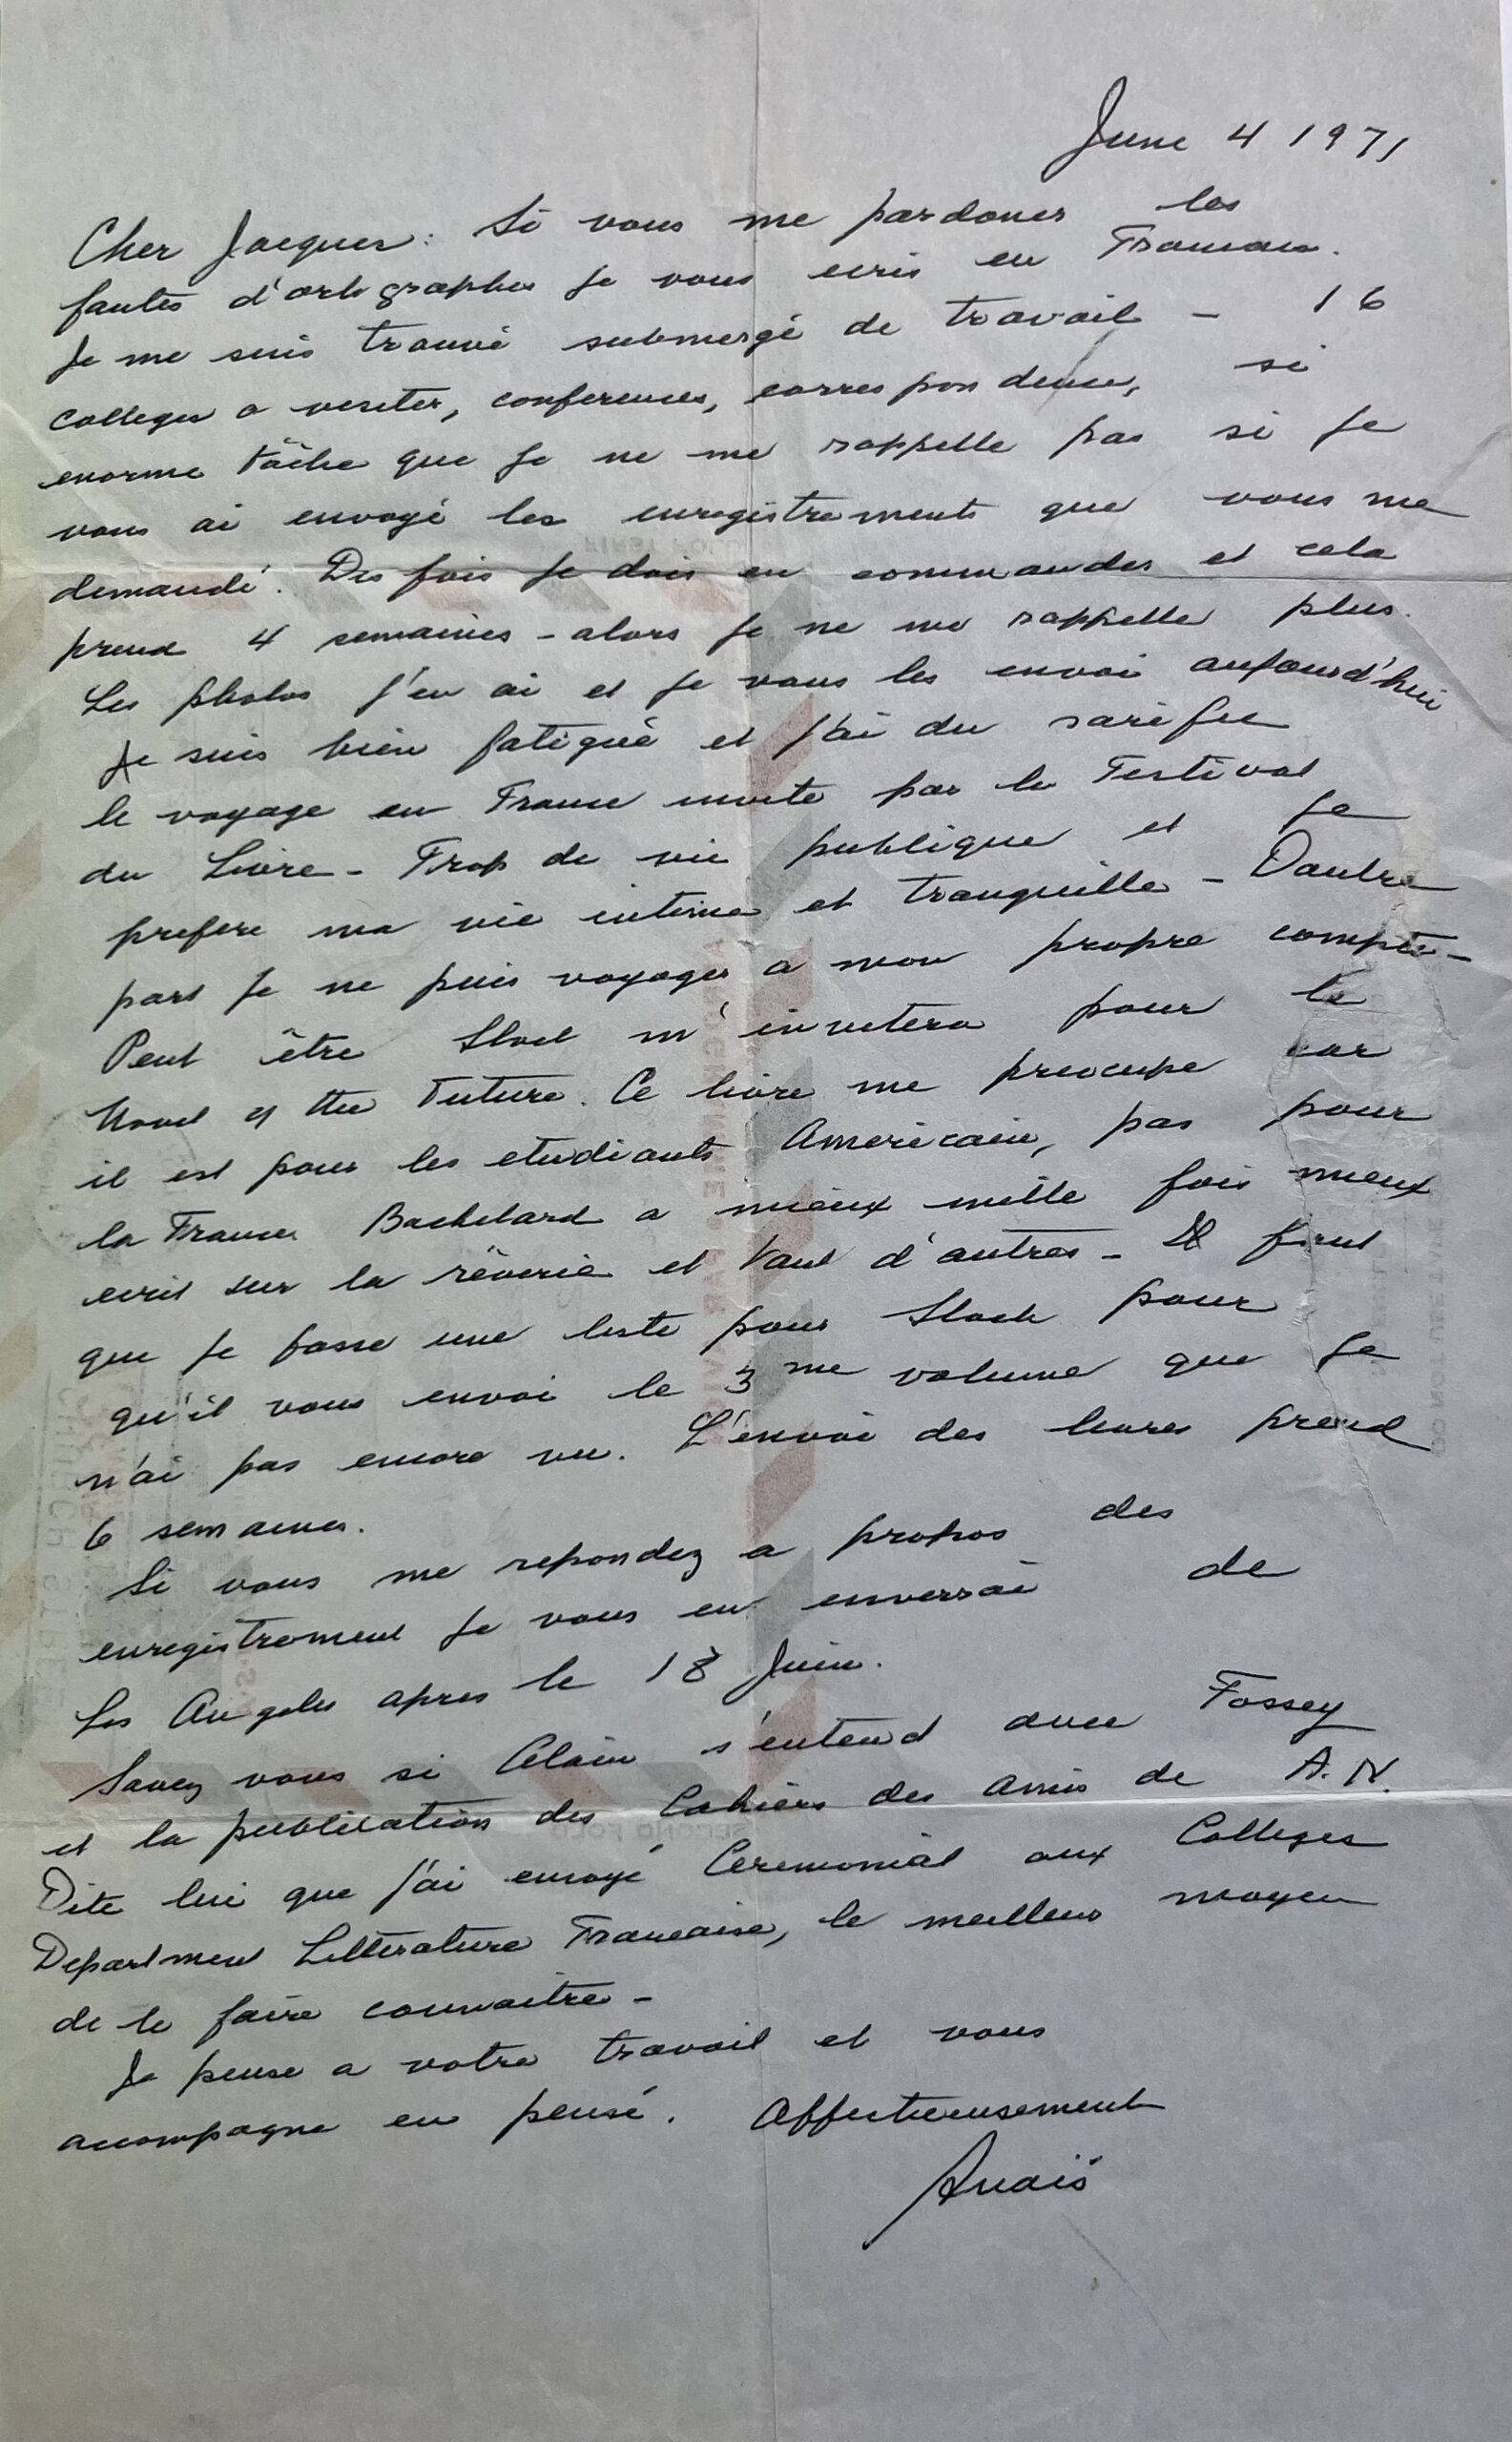 June 4 1971
Cher Jacques: Si vous me pardones les
fautes d'orthographes je vous ecris en Francais.
Je me suis trouvé submergé de travail – 16
Colleges a visiter, conferences, correspondence, si
enorme tâche que je ne me rappelle pas si je
vous ai envoyé les enregistrements que vous me
demandé. Des fois je dois en commander et cela
prend 4 semaines – alors je ne me rappelle plus.
Les photos j'en ai et je vous les envoi aujourd'hui
Je suis bien fatigué et j'ai du
le voyage en France invité par le Festival
du Livre – Trop de vie publique et je
prefere ma vie intime et tranquille – Dautre
part je ne puis voyager a mon propre compte –
Peut être Stock m'invitera pour le
Novel of the Future. Ce livre me preocupe car
il est pour les etudiants Americain, pas pour
la France Bachelard a mieux mille fois mieux
ecrit sur la rêverie et tant d'autres – Il faut
que je fasse une liste pour Stock pour
qu'il vous envoi le 3 me volume que je
n'ai pas encore vu. L'envoi des livres prend
6 semaines.
Si vous me repondez a propos des
enregistrement je vous en enverrai de
Los Angeles apres le 18 Juin.
Savez vous si Alain s'entend avec Fossey
et la publication des Cahiers des Amis de A. N.
Dite lui que j'ai envoyé Ceremonial aux Colleges
Department Litterature Francaise, le meilleur moyen
de le faire connaitre –
Je pense a votre travail et vous
accompagne en pensé. Affectueusement
Anaïs
FIRST FOLD
SECOND FOLD